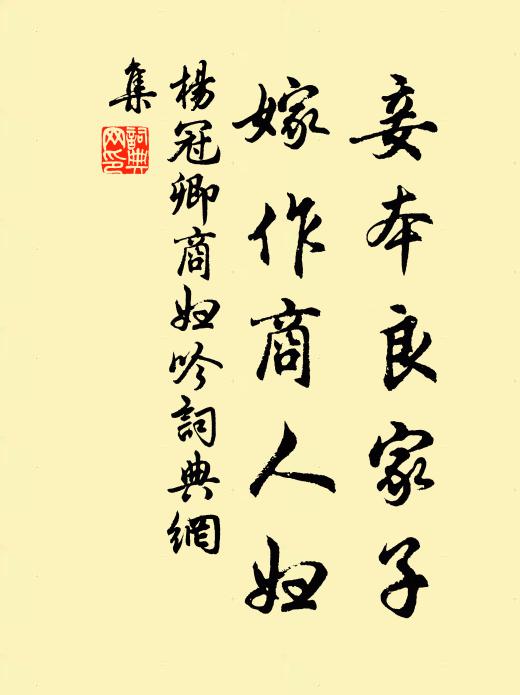 妾本良家子
嫁作商人妇
楊冠卿商妇吟詞典網
集
詞典网印